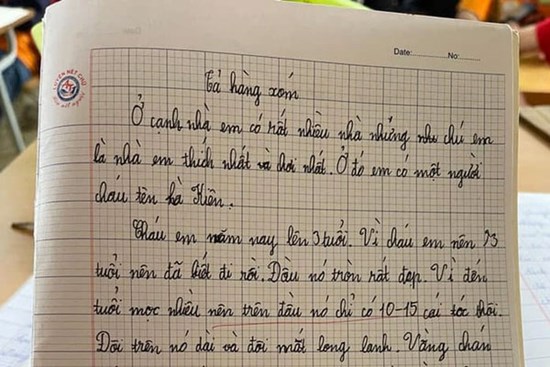 Date: No:
Tả hàng xóm
Ở cạnh nhà em có rất nhiều nhà nhưng nhà chú em
là nhà em thích nhất và chơi nhất. Ở đó em có một người
cháu tên là Kiên.
Cháu em năm nay lên 3 tuổi. Vì cháu em nên 3
tuổi nên đã biết đi rồi. Đầu nó tròn rất đẹp. Vì đến
tuổi mọc nhiều nên trên đầu nó chỉ có 10-15 cái tóc thôi.
Đôi trên nó dài và đôi mắt long lanh. Vầng chán